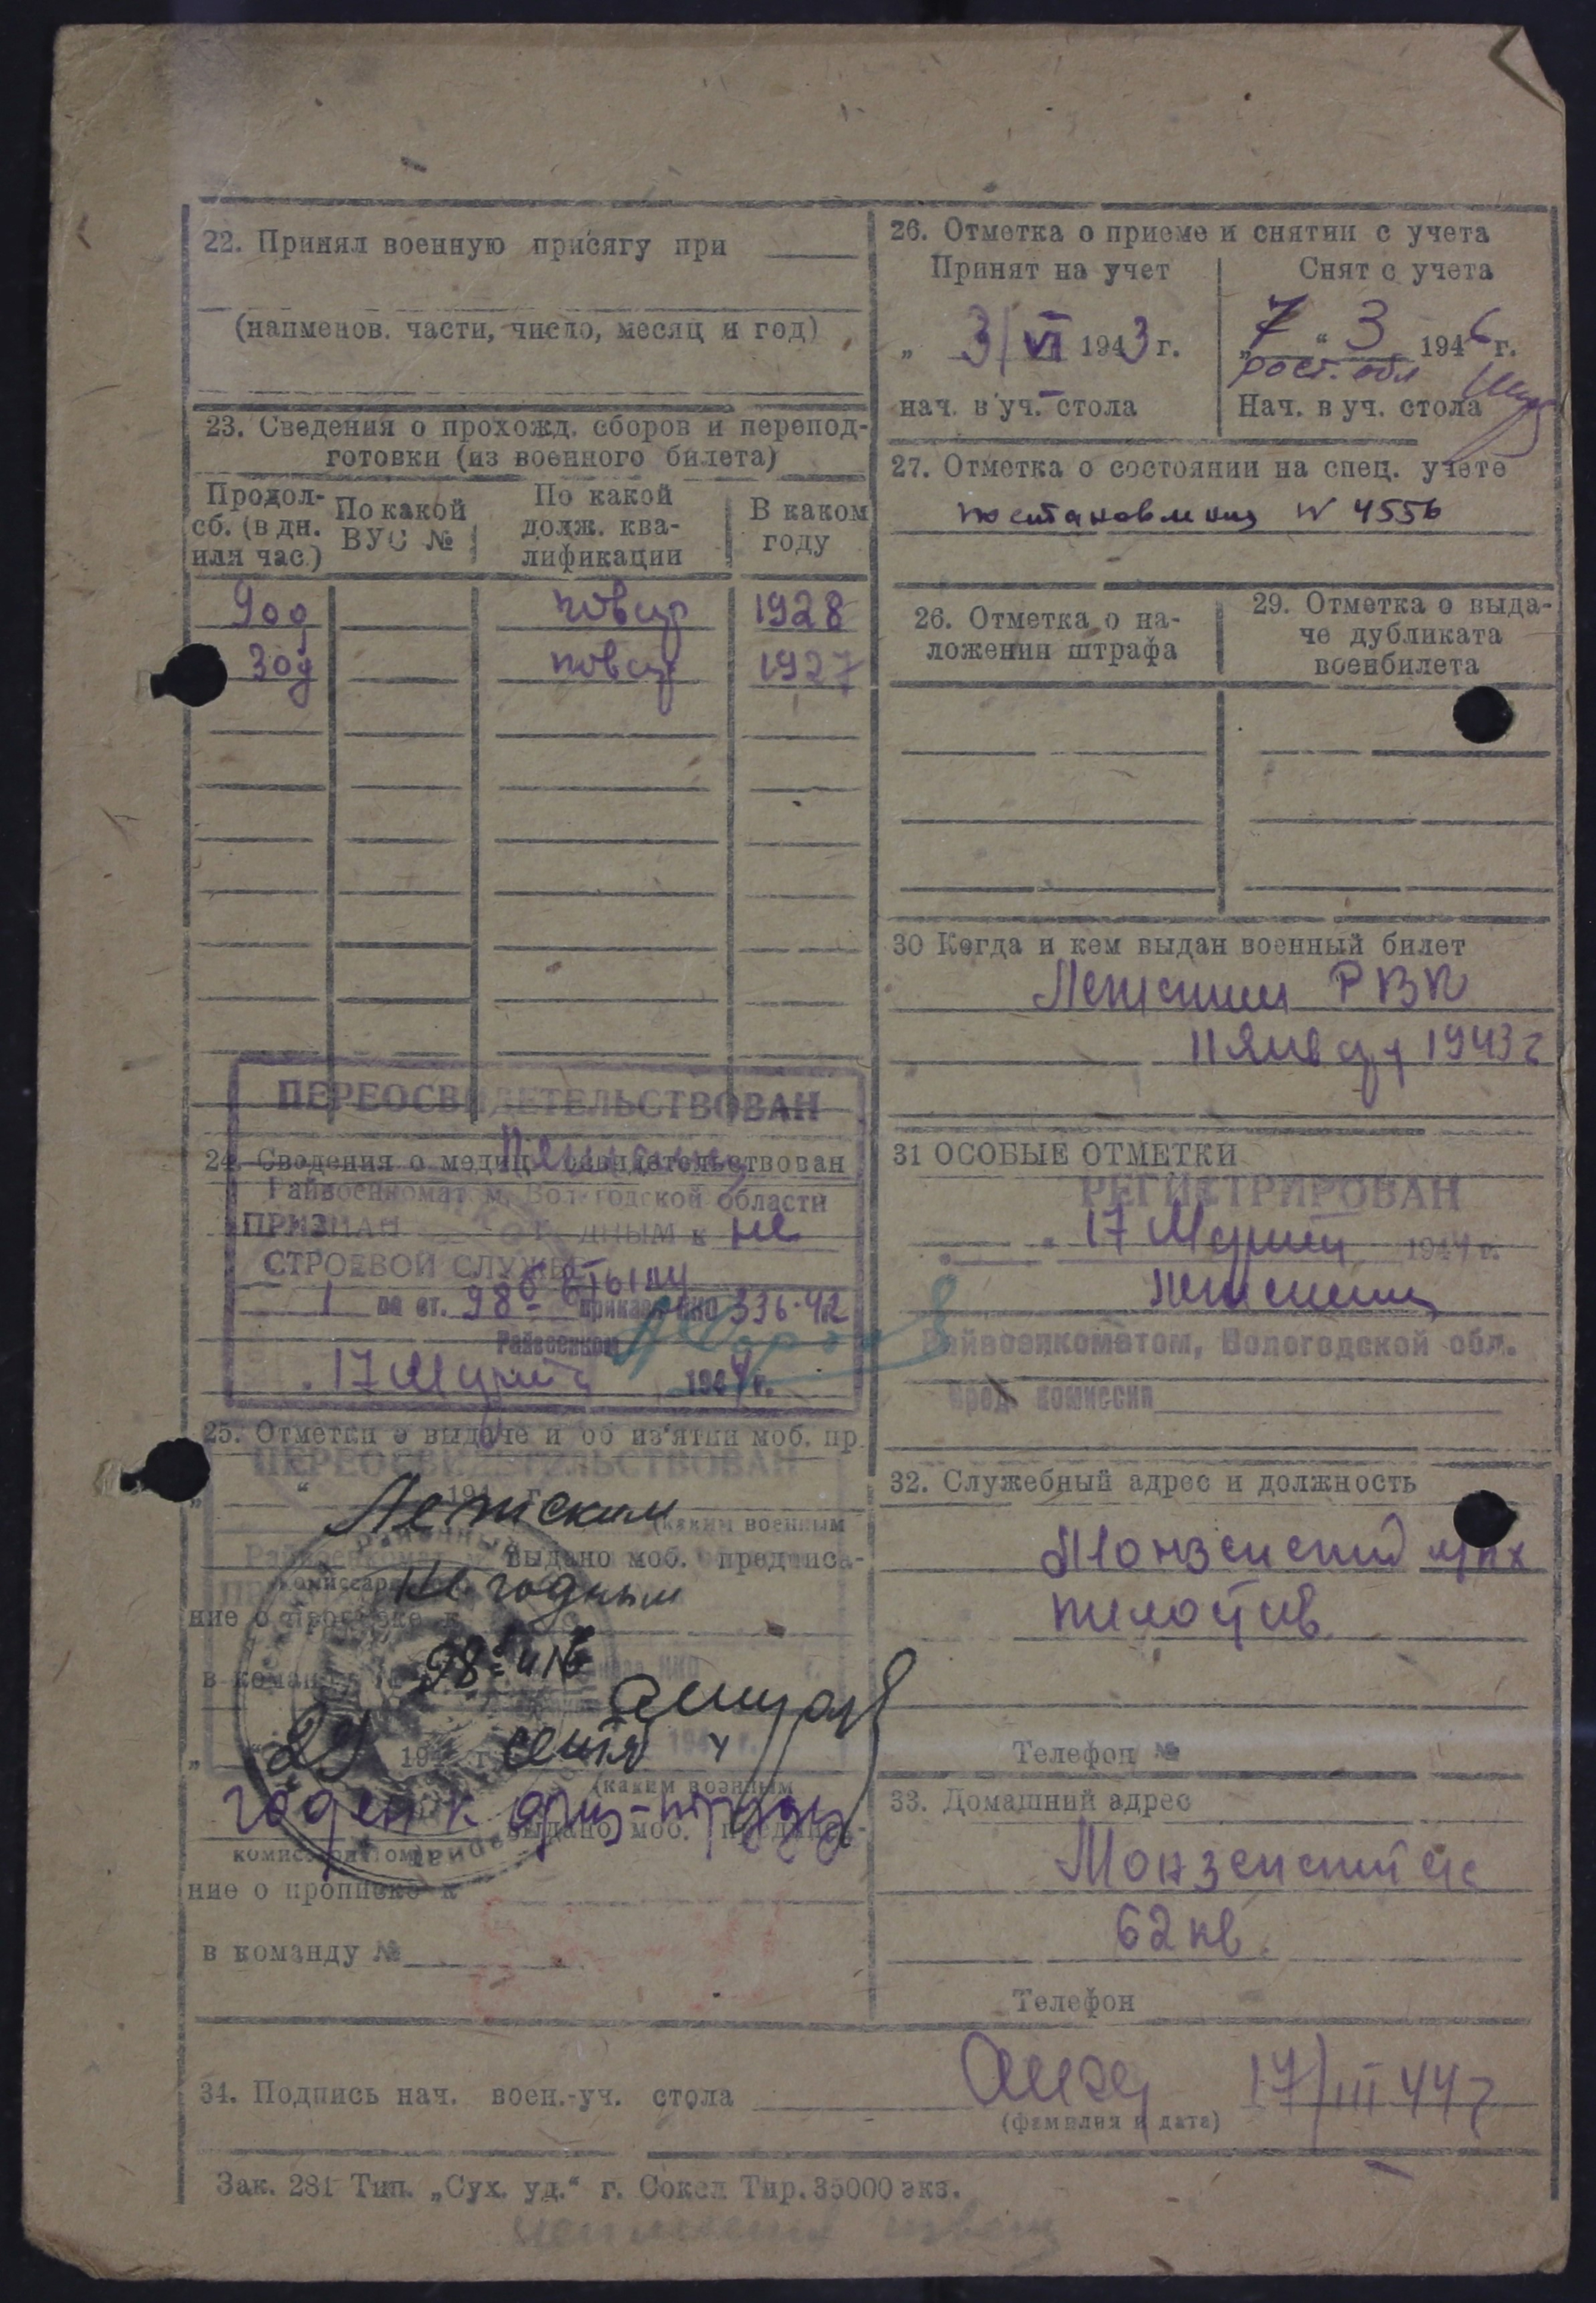 22. Принял военную присягу при
(наименов. части, число, месяц и год)
23. Сведения о прохожд. сборов и перепод-
готовки (из военного билета)
Продол-
сб. (в дн.
или час.)
По какой
ВУС №
По какой
долж. ква-
лификации
В каком
году
90д повар 1928
30д повар 1927
ПЕРЕОСВИДЕТЕЛЬСТВОВАН
24. Сведения о медиц. освидетельствован
Райвоенкомат м, Вологодской области
ПРИЗНАН ГОДНЫМ к не
СТРОЕВОЙ СЛУЖБЕ
1 по ст. 98 приказ НКО 336-42
Райвоенком
17 Марта 1944 г.
25. Отметки о выдаче и об из'ятии моб. пр.
ПЕРЕОСВИДЕТЕЛЬСТВОВАН
„ “ 194 г.
Летским
(каким военным
комиссариатом
выдано моб. предписа-
не годным
ние о прописке к
в команду
98
29 194 г. сентя 4
(каким военным
годен к физ-труду
комиссариатом
выдано моб. предписа-
ние о прописке к
в команду №
26. Отметка о приеме и снятии с учета
Принят на учет
Снят с учета
„ 3/VI 1943 г.
7 “ 3 1946 г.
рост. обл
нач. в уч. стола
Нач. в уч. стола
27. Отметка о состоянии на спец. учете
постановления N 4556
26. Отметка о на-
ложении штрафа
29. Отметка о выда-
че дубликата
военбилета
30 Когда и кем выдан военный билет
РВК
11 января 1943 г
31 ОСОБЫЕ ОТМЕТКИ
РЕГИСТРИРОВАН
17 Марта 1944 г.
Райвоенкоматом, Вологодской обл.
Пред. комиссии
32. Служебный адрес и должность
Монзенский
Телефон №
33. Домашний адрес
Монзенский
62 кв.
Телефон
34. Подпись нач. воен.-уч. стола
17/III 44 г
(фамилия и дата)
Зак. 281 Тип. „Сух. уд.“ г. Сокол Тир. 35000 экз.